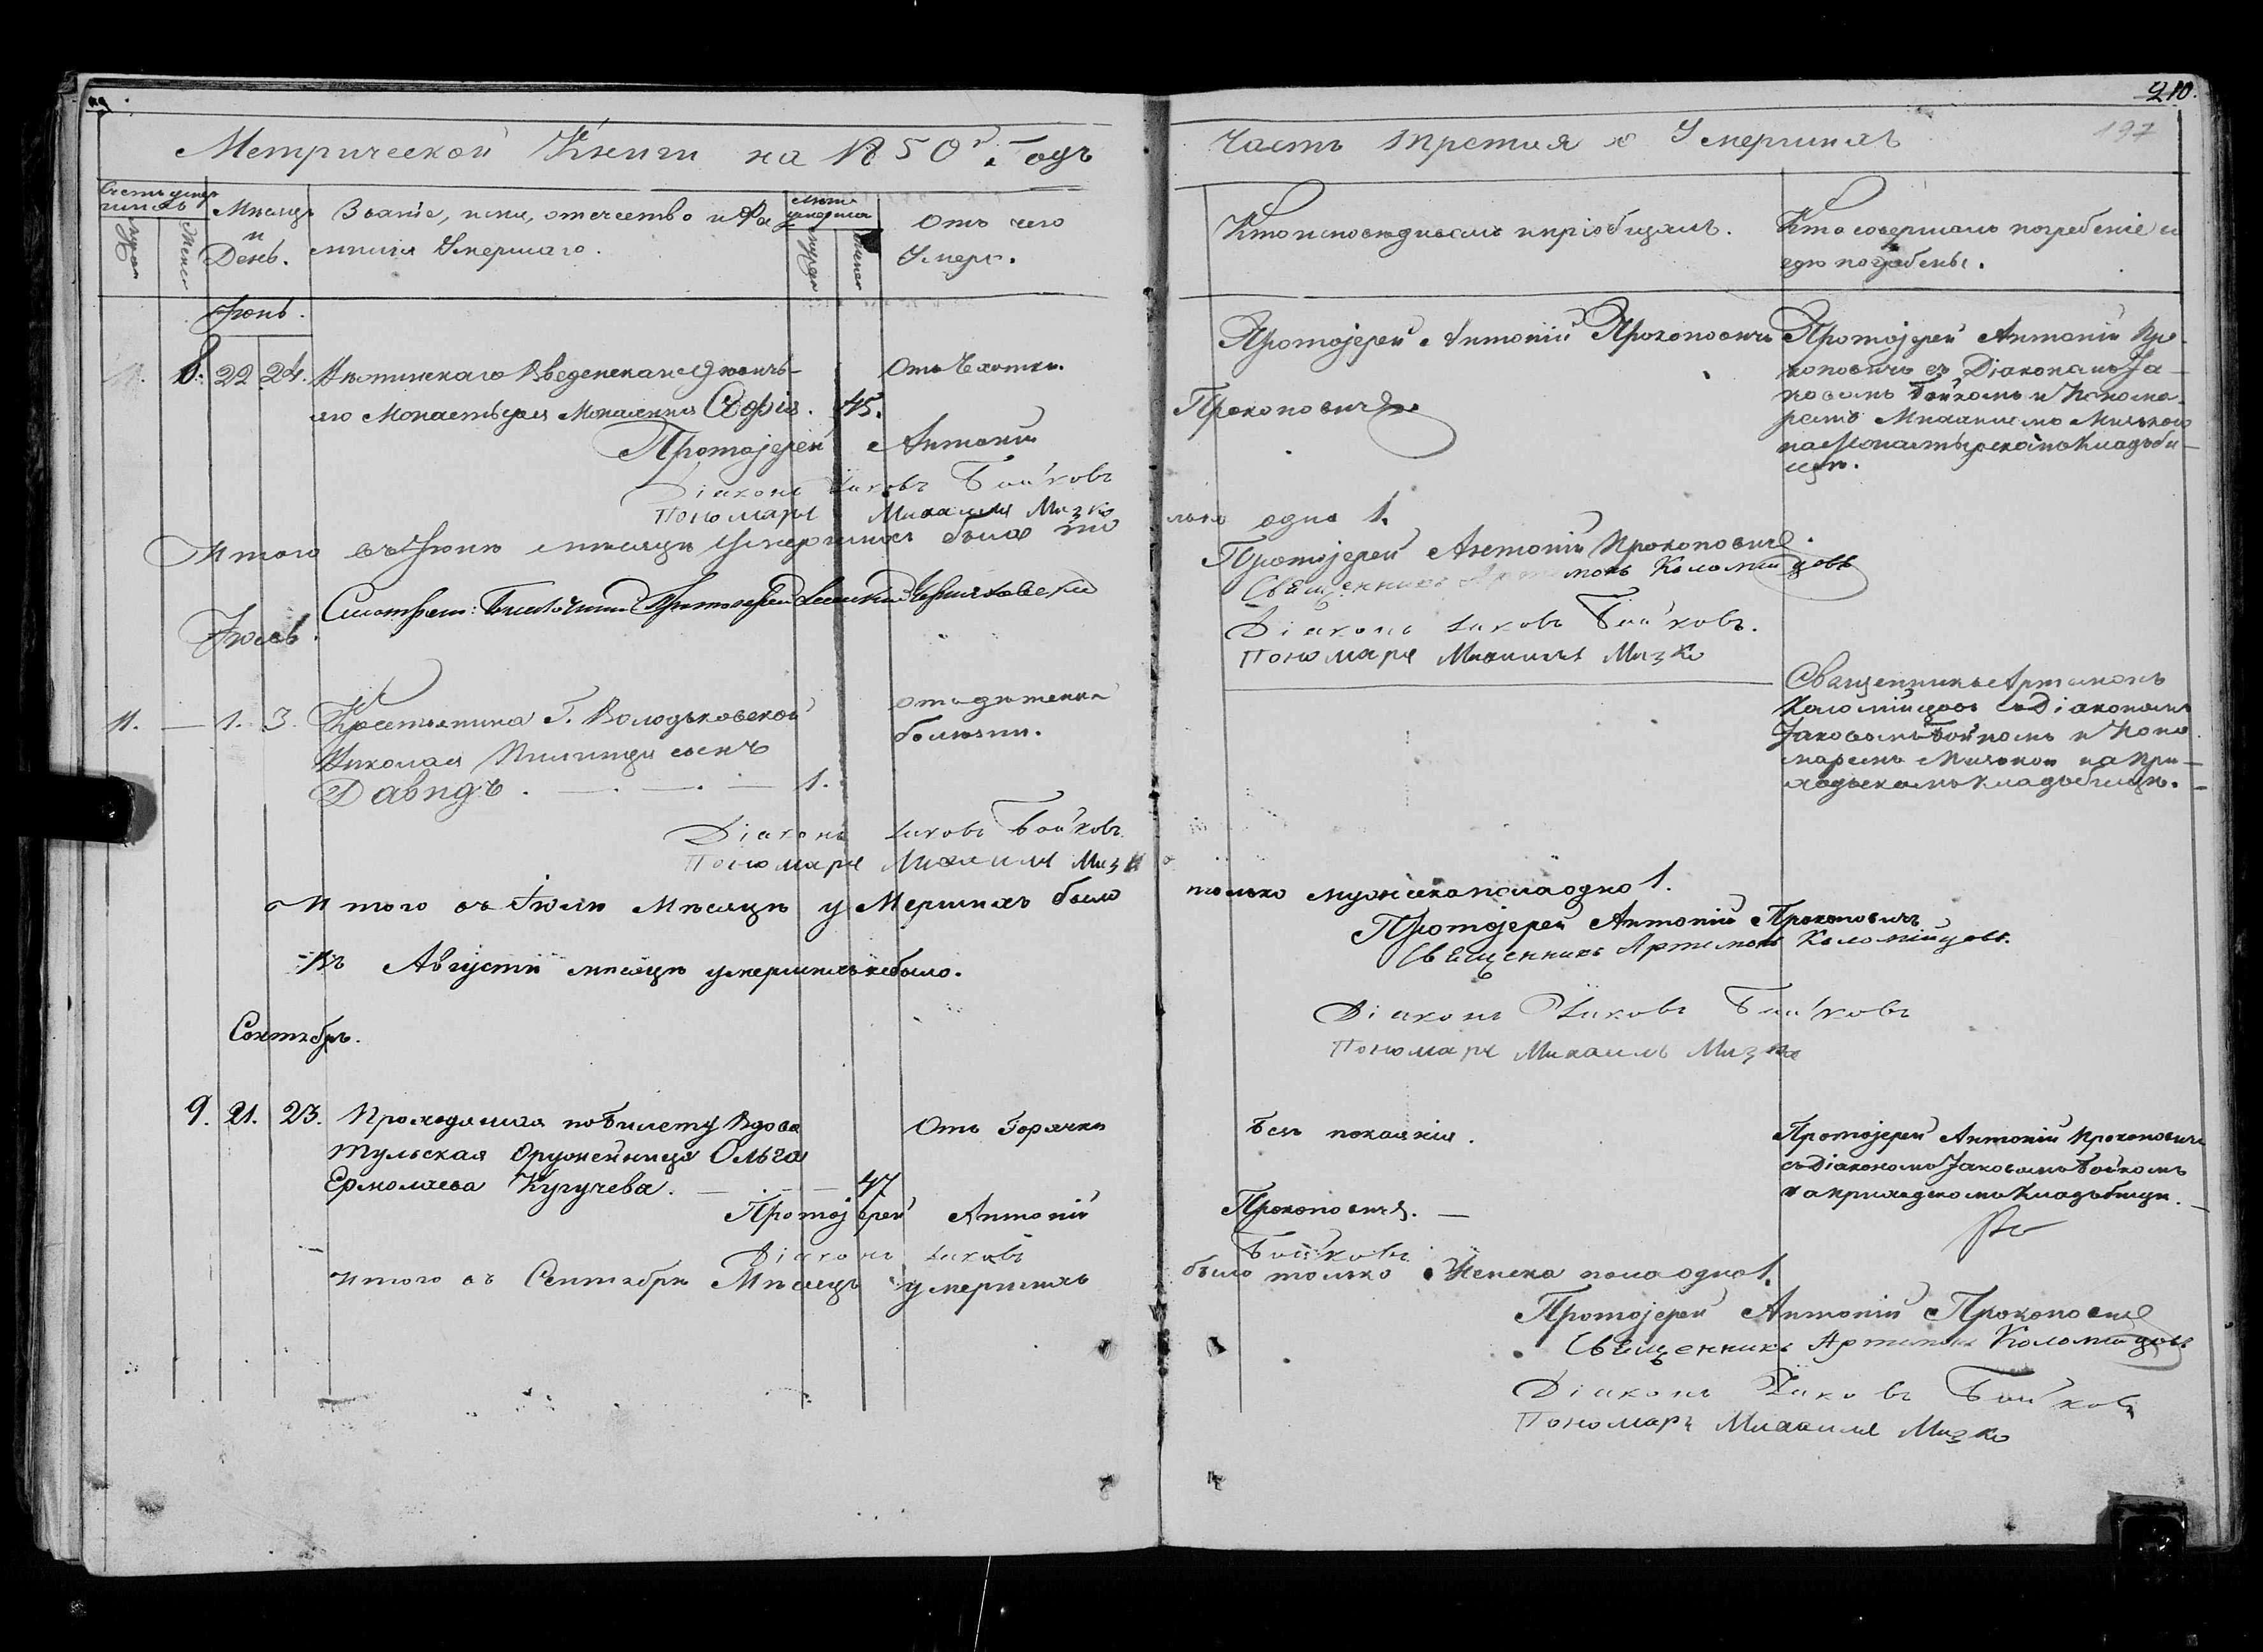 210.
197
Метрической Книги на 1850й Годъ
Часть третия о Умершихъ
Счетъ умер
шихъ
Мужес
Женск
Мѣсяцъ
и
День.
Званіе, имя, отечество и Фа
милия Умершаго.
Лѣта
умершаго
Мужеск
Женск
Отъ чего
Умеръ.
Кто исповѣдывалъ и пріобщалъ.
Кто совершалъ погребеніе и
гдѣ погребены.
Іюнь.
8. 22. 24.
Введенскаго Дѣвичь-
яго Монастыря Монахиня Софія. 45.
Отъ Чахотки.
Протоіерей Антоній Прокоповичъ
Протоіерей Антоній Про-
коповичъ съ Діакономъ Іа-
ковомъ Бойкомъ и Понома-
ремъ Михаиломъ Мизкою
на Монастырскомъ Кладьби-
щѣ.
Протоіерей Антоній Прокоповичъ
Діаконъ Іаковъ Бойковъ
Пономарь Михаилъ Мизко
Итого въ Іюнѣ мѣсяцѣ Умершихъ было то
лько одна 1.
Протоіерей Антоній Прокоповичъ.
Священникъ Артемонъ Коломійцовъ
Діаконъ Іаковъ Бойковъ.
Пономарь Михаилъ Мизко
Смотрѣлъ: Благочинный Протоіерей
Іюль.
11. — 1. 3. Крестьянина Г. Володьковской
Николая Пилипци сынъ
Давидъ. — . — . — 1.
отъ дѣтской
болѣзни.
Священникъ Артемонъ
Коломійцовъ съ Діакономъ
Іаковомъ Бойкомъ и Поно
маремъ Мизкою на При-
ходскомъ Кладьбищѣ. —
Діаконъ Іаковъ Бойковъ
Пономарь Михаилъ Мизко
Итого въ Іюлѣ Мѣсяцѣ уМершихъ было
только мужеска пола одно 1.
Протоіерей Антоній Прокоповичъ
Священникъ Артемонъ Коломійцовъ.
Въ Августѣ мѣсяцѣ умершихъ небыло.
Діаконъ Іаковъ Бойковъ
Пономарь Михаилъ Мизко
Сентябрь.
9. 21. 23. Проходящая по Билету Вдова
Тульская Оружейница Ольга
Ермолаева Кугучева. — . — — 47
Отъ Горячки
Безъ покаянія.
Протоіерей Антоній Прокоповичъ
съ Діакономъ Іаковомъ Бойкомъ
на приходскомъ Кладьбищѣ. —
Протоіерей Антоній Прокоповичъ. —
Діаконъ Іаковъ Бойковъ
итого въ Сентябрѣ Мѣсяцѣ умершихъ
было только Женска пола одно 1.
Протоіерей Антоній Прокоповичъ
Священникъ Артемонъ Коломійцовъ
Діаконъ Іаковъ Бойковъ
Пономарь Михаилъ Мизко